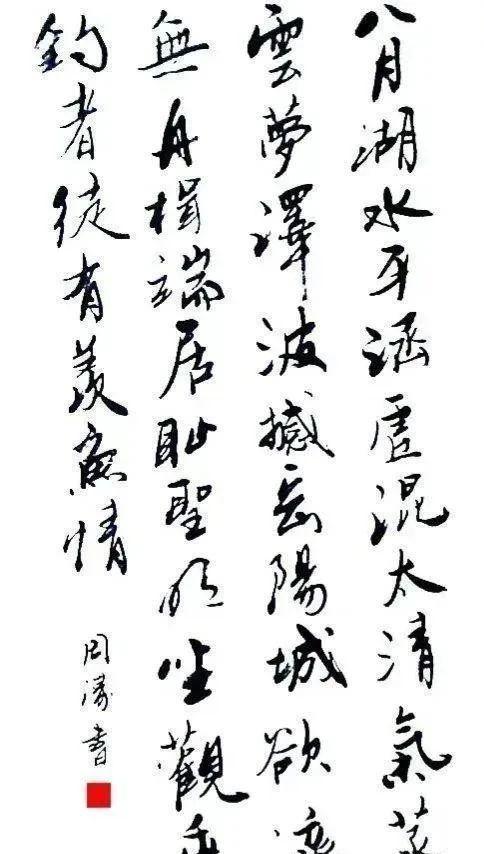 八月湖水平涵虛混太清氣蒸
雲夢澤波撼岳陽城欲濟
無舟楫端居耻聖明坐觀垂
釣者徒有羨魚情
周濤書